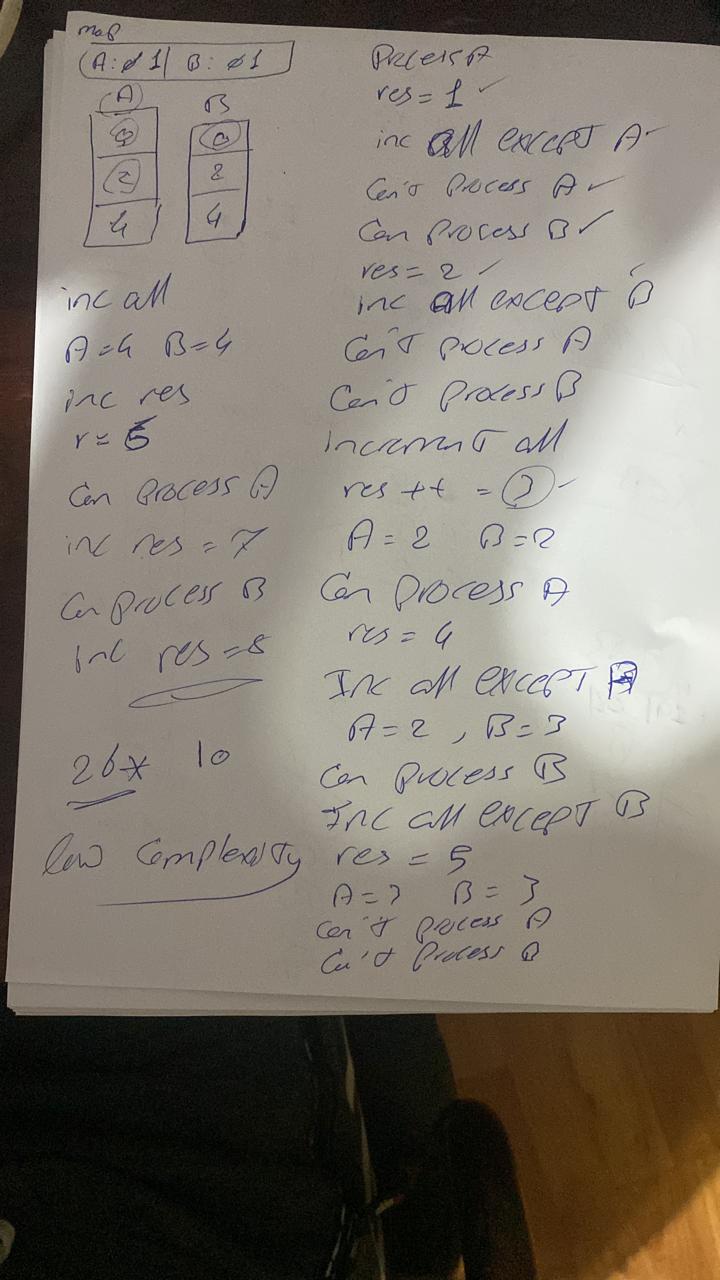 map
(A: 0 1 | B: 0 1
(A)
B
0
2
4
0
2
4
inc all
A=4 B=4
inc res
r= 6
Can process A
inc res = 7
Can process B
Inc res = 8
26* 10
low complexity
Process A
res= 1 ✓
inc all except A
Can't process A ✓
Can process B ✓
res= 2 ✓
inc all except B
Can't process A
Can't process B
Increment all
res ++ = 3
A=2 B=2
Can process A
res= 4
Inc all except A
A=2, B=3
Can process B
Inc all except B
res = 5
A=3 B= 3
Can't process A
Can't process B